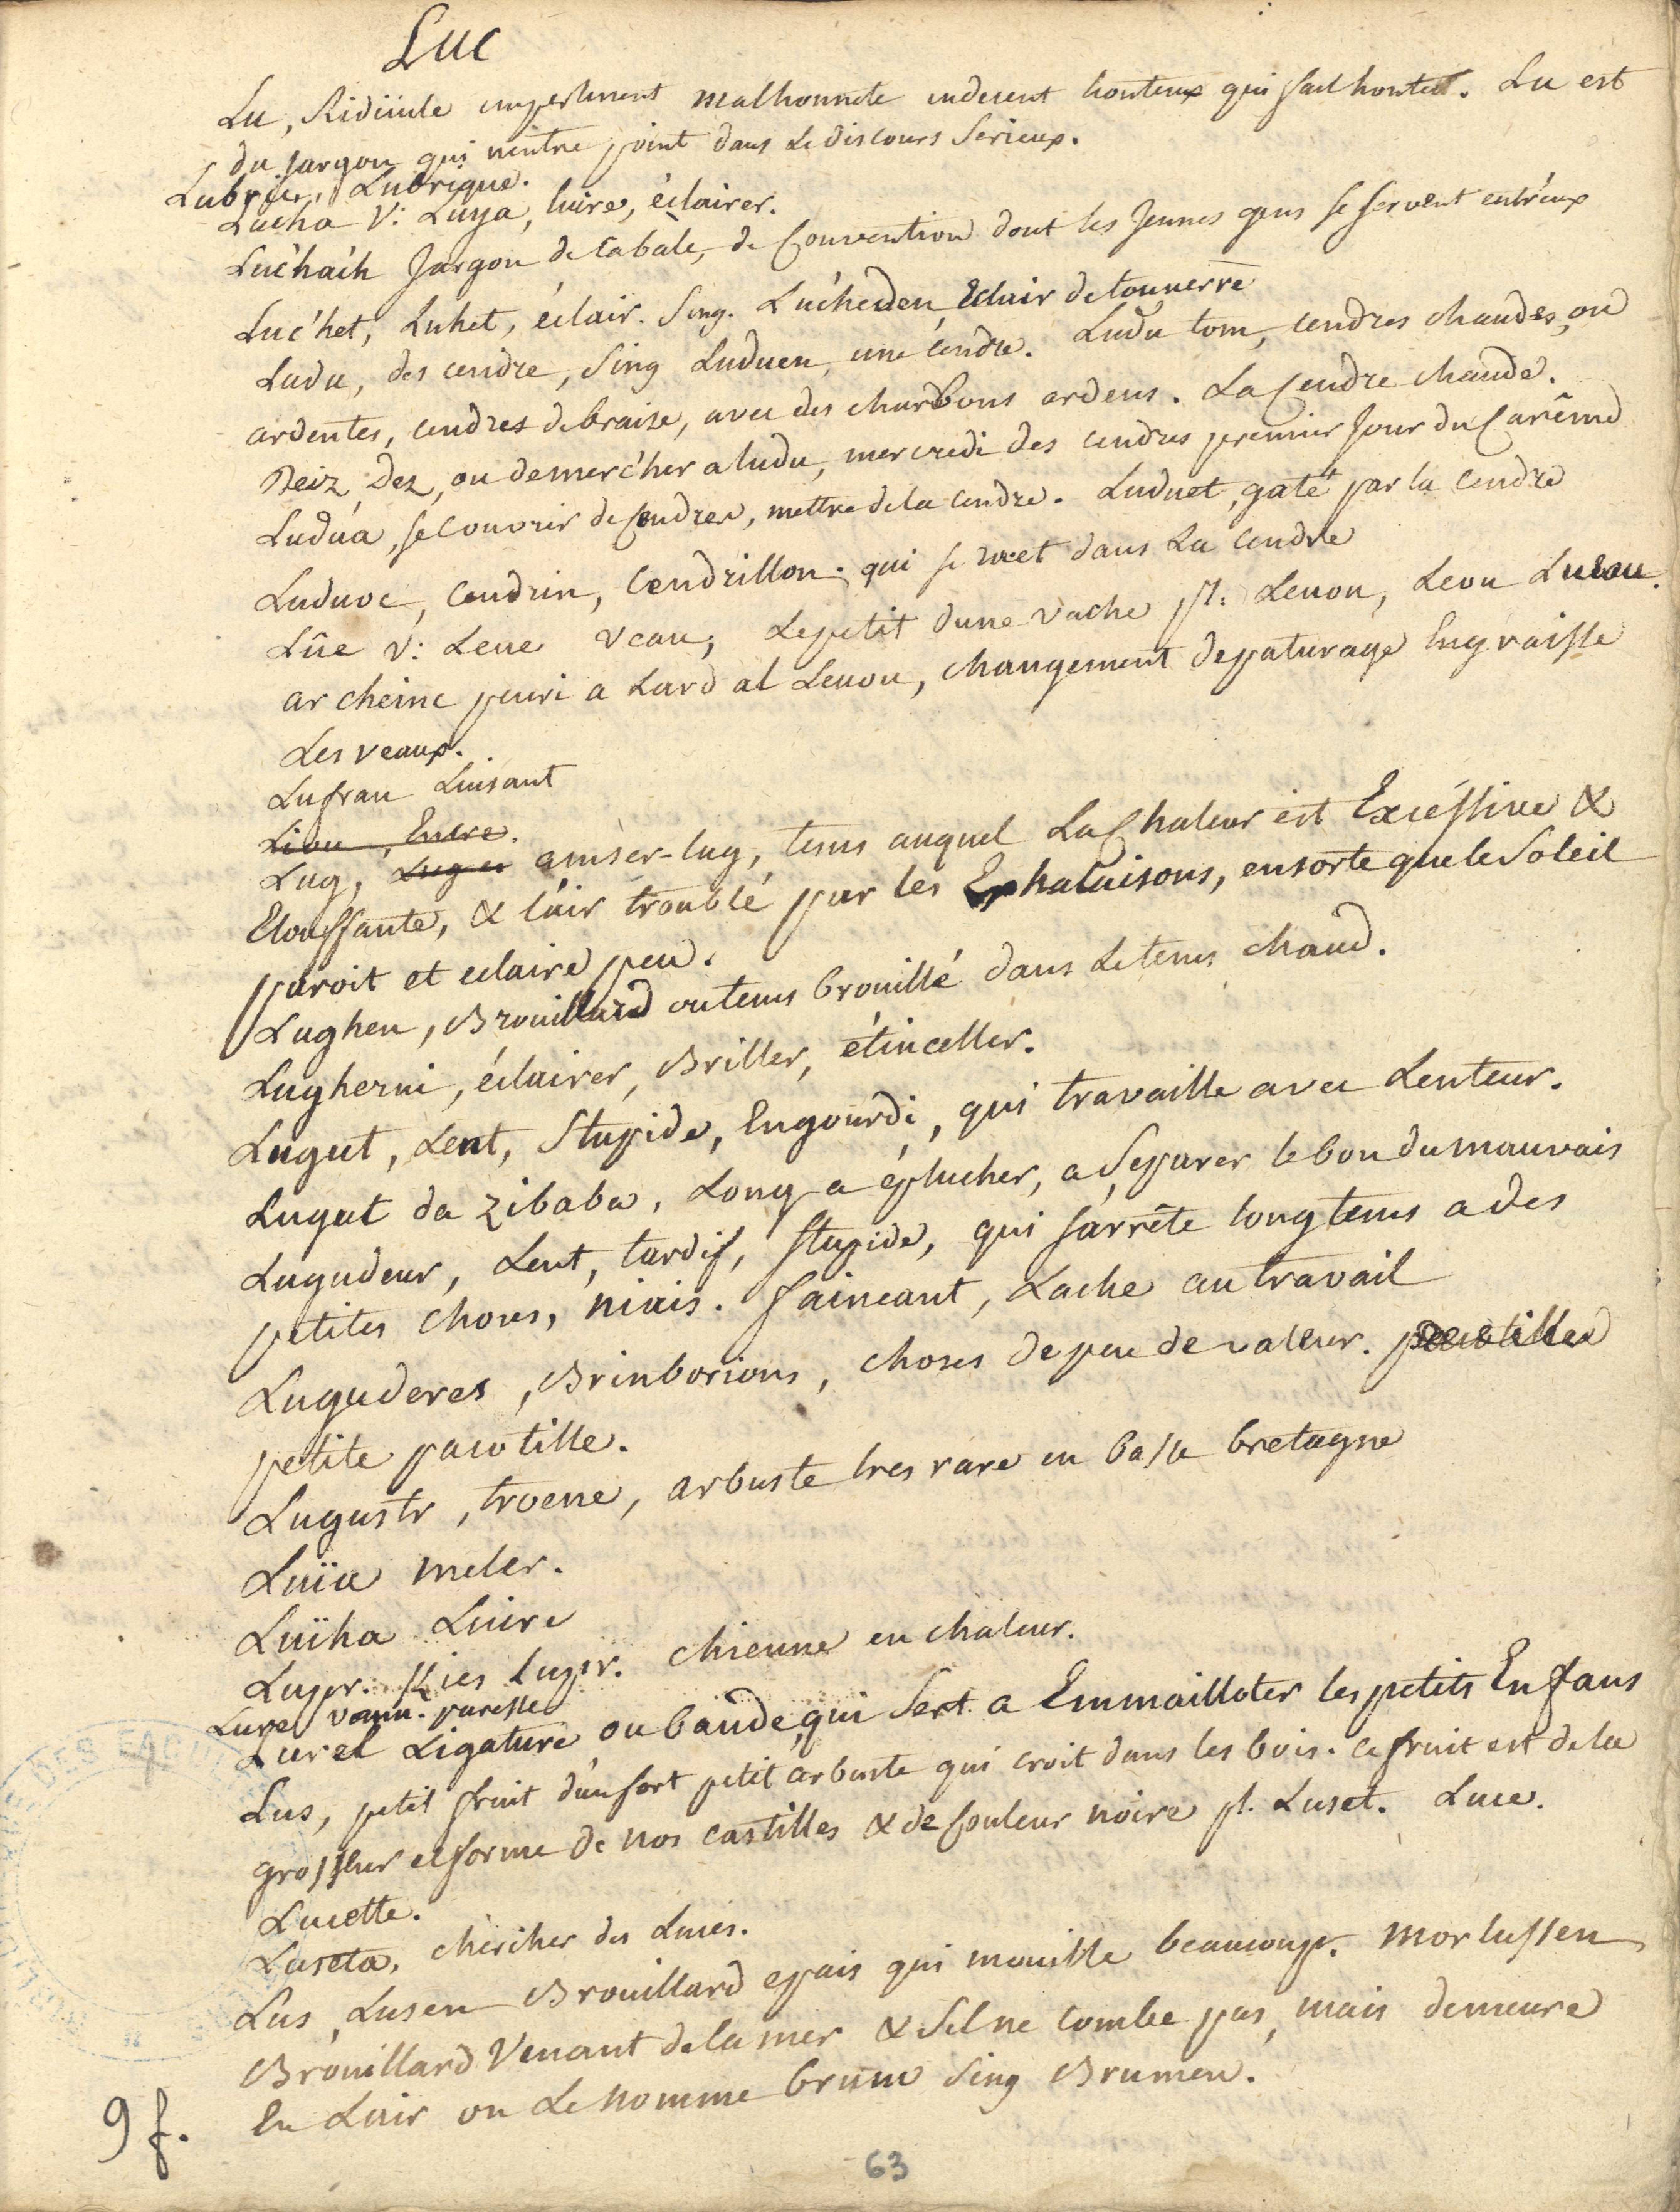 Luc
Lu, Ridiüule impertinent malhonnete indesent honteux qui fait honte. Lu est
du jargon qui nentre point dans Le discours Serieux.
Lubric, Lubrique.
Lucha V: Luya, luire, éclairer.
Luc'hac'h Jargon de Cabale, de Convention dont les Jeunes gens se servent entr'eux
Luc'het, Luhet, éclair. Sing. Luc'heden, Eclair de tonnerre
Ludu, des cendre, Sing Luduen, une Cendre. Ludu tom, cendres chaudes, ou
ardentes, cendres de braise, avec des charbons ardens. La Cendre chaude.
Deiz, Dez, ou demerc'her a ludu, mercredi des cendres premier Jour du Carême
Luduа, se couvrir de Cendres, mettre de la cendre. Luduet, gaté par la cendre
Luduoc, Cendrin, Cendrillon. qui se met dans La cendre
Lûe v: Leue veau, Le petit dune vache pl. Leuou, Leou Lueou.
ar cheinc peuri a Lard al Leuou, changement de paturage Engraisse
Les veaux.
Lufran Luisant
Liou, Encre.
Lug, Lug er amser-lug, tems auquel La Chaleur est Excessive &
Etouffante, & l'air troublé par les Exhalaisons, ensorte que le Soleil
paroit et eclaire peu.
Lughen, Brouillard ou tems brouillé dans Le tems chaud.
Lugherni, éclairer, Briller, étinceller.
Lugut, Lent, Stupide, Engourdi, qui travaille avec Lenteur.
Lugut da Zibaba, Long a éplucher, a Separer le bon du mauvais
Lugudeur, Lent, tardif, Stupide, qui s'arrête long tems a des
petites choses, niais. faineant, Lache au travail
Luguderes, Brinborions, choses de peu de valeur. pacotilles
petite pacotille.
Lugustr, troene, arbuste tres rare en basse bretagne
Luïa meler.
Luïha Luire
Lupr. Kies lupr. chienne en chaleur.
Lure vann. paresse
Lurel Ligature ou bande, qui Sert a Emmailloter les petits Enfans
Lus, petit fruit d'un fort petit arbuste qui croit dans les bois. ce fruit est de la
grosseur et forme de nos castilles & de Couleur noire pl. Luset. Luce.
Lucette.
Luseta, chercher des Luces.
Lus, Lusen Brouillard epais qui mouille beaucoup. Morlussen
Brouillard Venant de la mer & Sil ne tombe pas, mais demeure
En Lair on Le nomme brum Sing Brumen.
9 f.
63